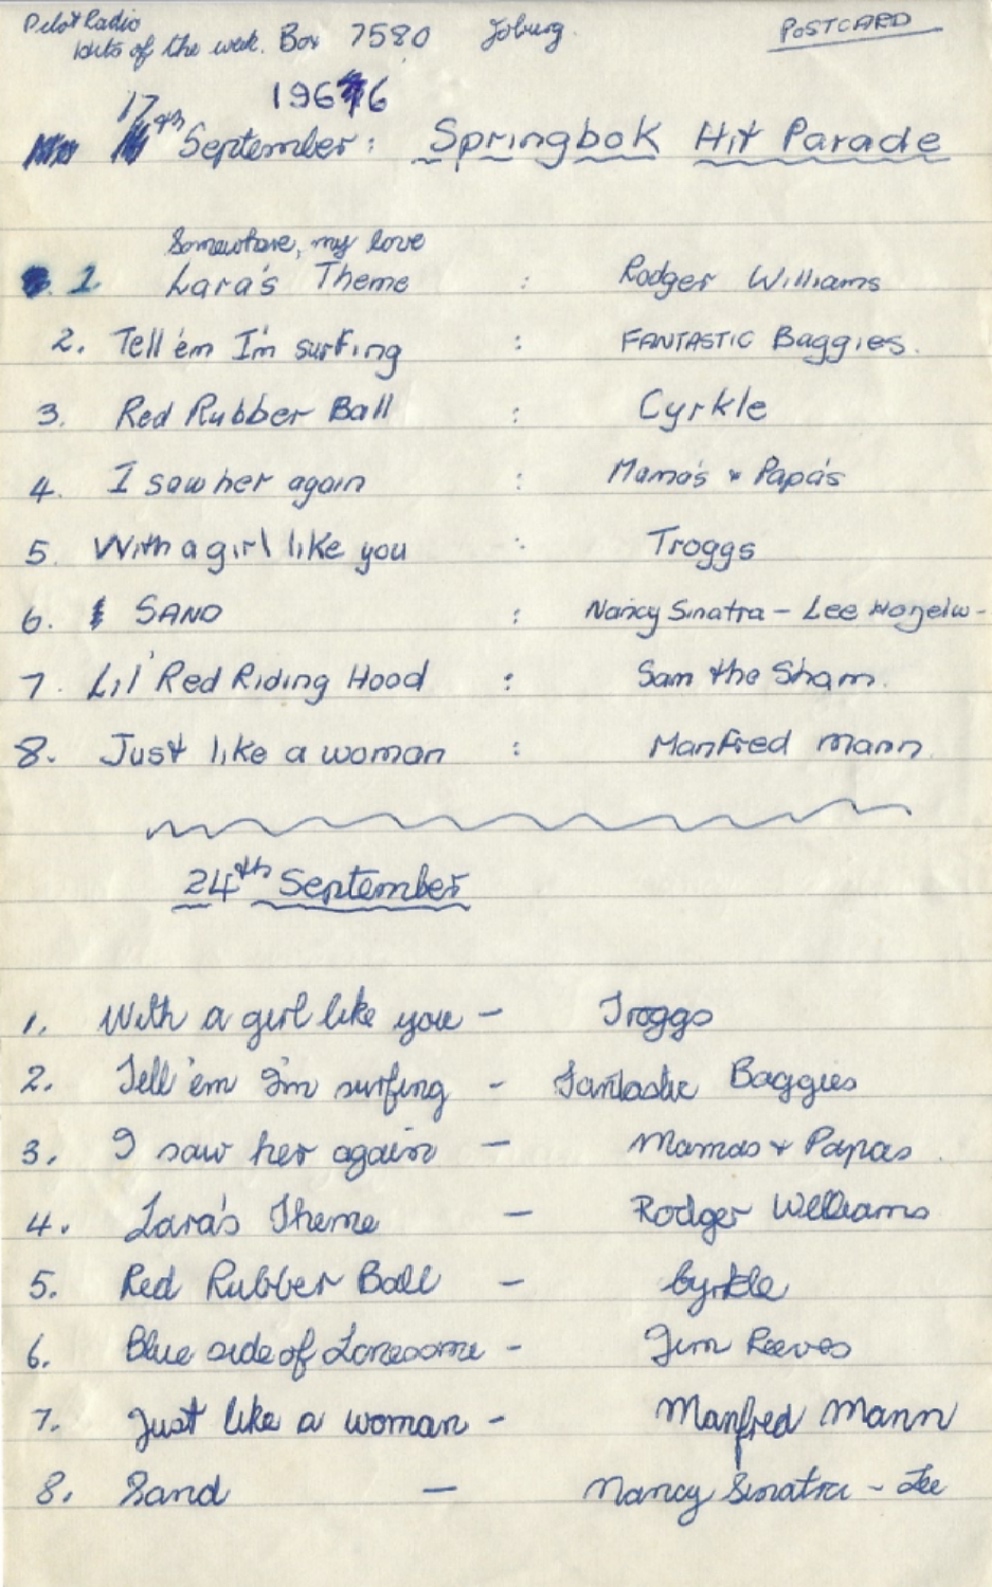 Pilot Radio
Hits of the week. Box 7580 Joburg. POSTCARD
1966
17th September: Springbok Hit Parade
Somewhere, my love
1. Lara's Theme : Rodger Williams
2. Tell 'em I'm surfing : FANTASTIC Baggies.
3. Red Rubber Ball : Cyrkle
4. I saw her again : Mama's & Papa's
5. With a girl like you : Troggs
6. SAND : Nancy Sinatra - Lee Hazelw-
7. Lil' Red Riding Hood : Sam the Sham.
8. Just like a woman : Manfred Mann
24th September
1. With a girl like you - Troggs
2. Tell 'em I'm surfing - Fantastic Baggies
3. I saw her again - Mamas & Papas.
4. Lara's Theme - Rodger Williams
5. Red Rubber Ball - Cyrkle
6. Blue side of Lonesome - Jim Reeves
7. Just like a woman - Manfred Mann
8. Sand - Nancy Sinatra - Lee